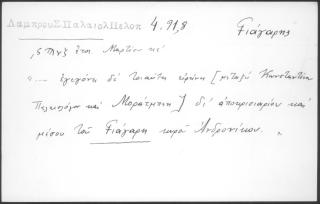 ΛαμπρουΣΠαλαιολΠελοπ 4.91,8 Γιάγαρης
,ςπνξ ἔτει Μαρτίου κε
"... ἐγεγόνει δὲ τοιαύτη εἰρήνη [μεταξὺ Κωνσταντίνου
Παλαιολόγου καὶ Μοράτμπεη] δι' ἀποκρισιαρίου καὶ
μέσου τοῦ Γιάγαρη κυροῦ Ἀνδρονίκου. "